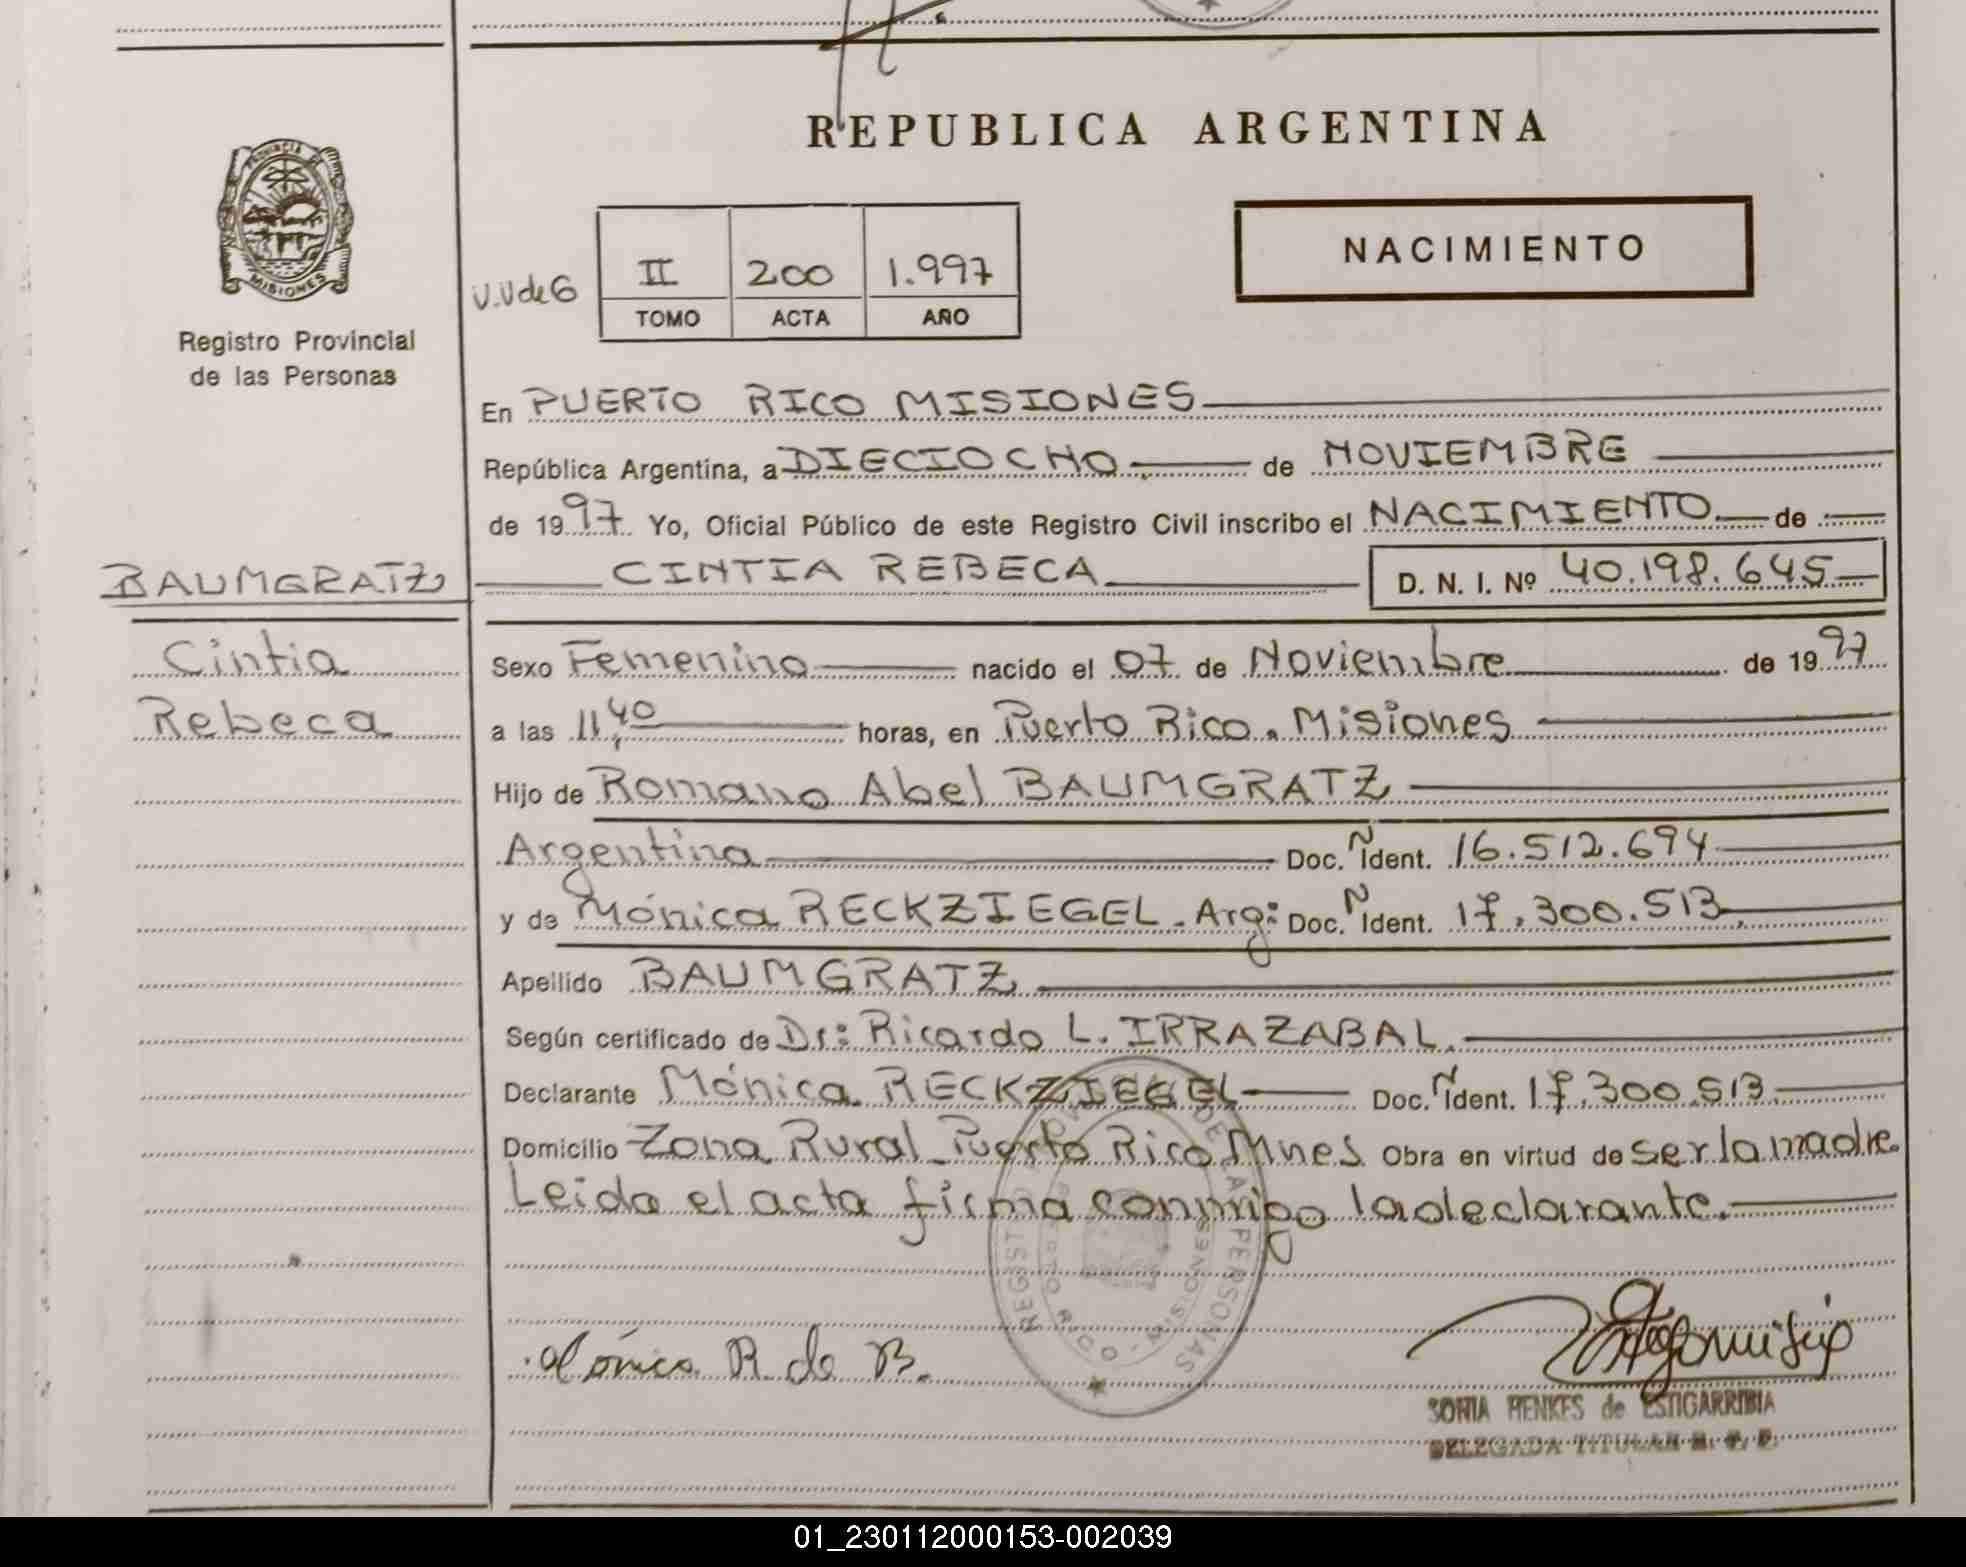 REPUBLICA ARGENTINA
PROVINCIA
MISIONES
Registro Provincial
de las Personas
V.V de G
II 200 1.997
TOMO ACTA AÑO
NACIMIENTO
En PUERTO RICO MISIONES
República Argentina, a DIECIOCHO de NOVIEMBRE
de 1997 Yo, Oficial Público de este Registro Civil inscribo el NACIMIENTO de
BAUMGRATZ
CINTIA REBECA D. N. I. Nº 40.198.645
Cintia
Rebeca
Sexo Femenino nacido el 07 de Noviembre de 1997
a las 11,40 horas, en Puerto Rico. Misiones
Hijo de Romano Abel BAUMGRATZ
Argentina Doc. N Ident. 16.512.694
y de Mónica RECKZIEGEL - Arg: Doc. N Ident. 17.300.513
Apellido BAUMGRATZ
Según certificado de Dr: Ricardo L. IRRAZABAL.
Declarante Mónica RECKZIEGEL Doc. N Ident. 17.300.513
Domicilio Zona Rural - Puerto Rico Mnes Obra en virtud de ser la madre.
Leida el acta firma conmigo la declarante.
Mónica R. de B.
SONIA HENKES de ESTIGARRIBIA
DELEGADA TITULAR R. P. P.
01_230112000153-002039